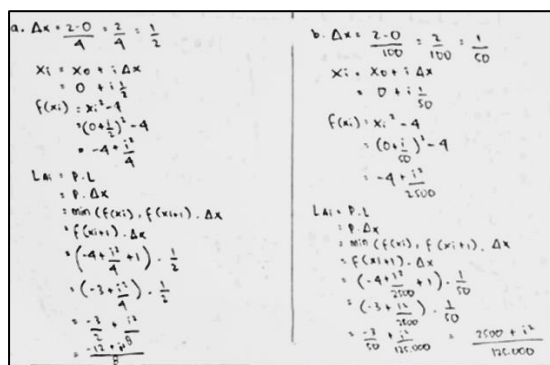 a. Δx = 2-0/4 = 2/4 = 1/2
xi = x0 + i Δx
= 0 + i 1/2
f(xi) = xi² - 4
= (0 + i/2)² - 4
= -4 + i²/4
LAi = P.L
= P. Δx
= min (f(xi), f(xi+1). Δx
= f(xi+1). Δx
= (-4 + i²/4 + 1) . 1/2
= (-3 + i²/4) . 1/2
= -3/2 + i²/8
= -12 + i²/8
b. Δx = 2-0/100 = 2/100 = 1/50
xi = x0 + i Δx
= 0 + i 1/50
f(xi) = xi² - 4
= (0 + i/50)² - 4
= -4 + i²/2500
LAi = P.L
= P. Δx
= min (f(xi), f(xi+1). Δx
= f(xi+1). Δx
= (-4 + i²/2500 + 1) . 1/50
= (-3 + i²/2500) . 1/50
= -3/50 + i²/125.000 = 2500 + i²/125.000